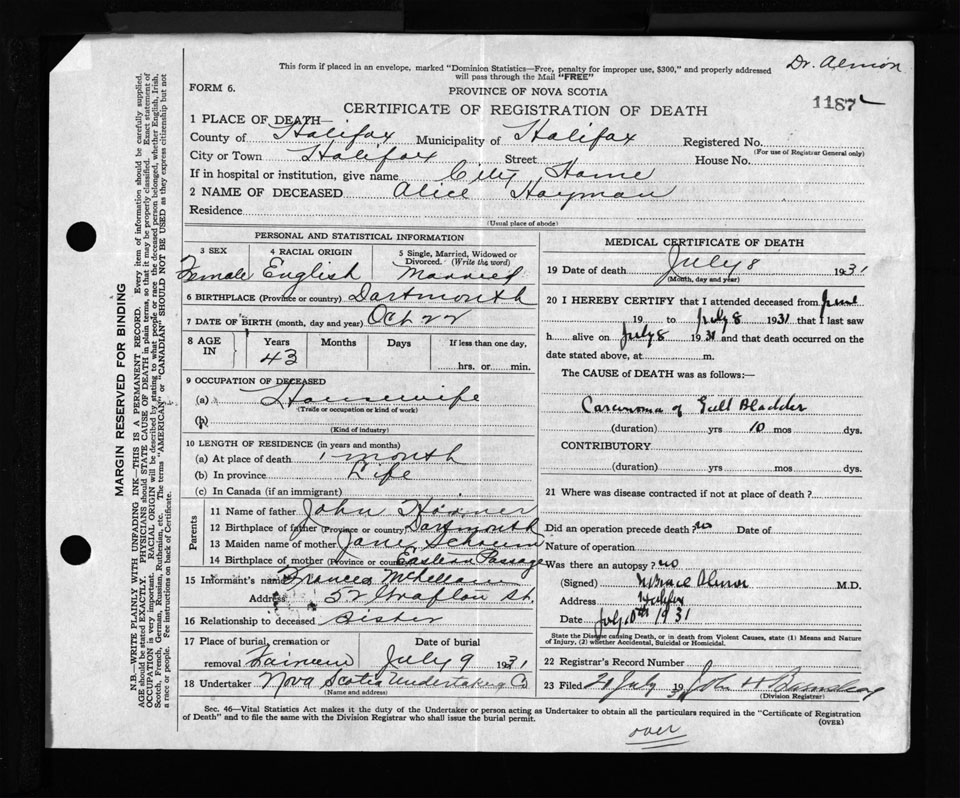 This form if placed in an envelope, marked "Dominion Statistics—Free, penalty for improper use, $300," and properly addressed
will pass through the Mail "FREE"
Dr. Almon
FORM 6.
PROVINCE OF NOVA SCOTIA
1187
CERTIFICATE OF REGISTRATION OF DEATH
1 PLACE OF DEATH—
County of Halifax Municipality of Halifax Registered No.
(For use of Registrar General only)
City or Town Halifax Street House No.
If in hospital or institution, give name City Home
2 NAME OF DECEASED Alice Hayman
Residence
(Usual place of abode)
PERSONAL AND STATISTICAL INFORMATION
3 SEX 4 RACIAL ORIGIN 5 Single, Married, Widowed or
Divorced. (Write the word)
Female English Married
6 BIRTHPLACE (Province or country) Dartmouth
7 DATE OF BIRTH (month, day and year) Oct 22
8 AGE IN Years Months Days If less than one day,
43 hrs. or min.
9 OCCUPATION OF DECEASED
(a) Housewife
(Trade or occupation or kind of work)
(b)
(Kind of industry)
10 LENGTH OF RESIDENCE (in years and months)
(a) At place of death 1 month
(b) In province Life
(c) In Canada (if an immigrant)
Parents
11 Name of father John
12 Birthplace of father (Province or country) Dartmouth
13 Maiden name of mother Jane
14 Birthplace of mother (Province or country) Eastern Passage
15 Informant's name Frances McLellan
Address 52 Grafton St.
16 Relationship to deceased Sister
17 Place of burial, cremation or Date of burial
removal Fairview July 9 1931
18 Undertaker Nova Scotia Undertaking Co
(Name and address)
MEDICAL CERTIFICATE OF DEATH
19 Date of death July 8 1931
(Month, day and year)
20 I HEREBY CERTIFY that I attended deceased from June
19 to July 8 1931 that I last saw
h alive on July 8 1931 and that death occurred on the
date stated above, at m.
The CAUSE of DEATH was as follows:—
Carcinoma of Gall Bladder
(duration) yrs 10 mos dys.
CONTRIBUTORY
(duration) yrs mos dys.
21 Where was disease contracted if not at place of death?
Did an operation precede death? no Date of
Nature of operation
Was there an autopsy? no
(Signed) Almon M.D.
Address Halifax
Date July 10th 1931
State the Disease causing Death, or in death from Violent Causes, state (1) Means and Nature
of Injury, (2) whether Accidental, Suicidal or Homicidal.
22 Registrar's Record Number
23 Filed 20 July 19 John H
(Division Registrar)
Sec. 46—Vital Statistics Act makes it the duty of the Undertaker or person acting as Undertaker to obtain all the particulars required in the "Certificate of Registration
of Death" and to file the same with the Division Registrar who shall issue the burial permit.
(OVER)
over
MARGIN RESERVED FOR BINDING
N.B.—WRITE PLAINLY WITH UNFADING INK—THIS IS A PERMANENT RECORD. Every item of information should be carefully supplied.
AGE should be stated EXACTLY. PHYSICIANS should STATE CAUSE OF DEATH in plain terms, so that it may be properly classified. Exact statement of
OCCUPATION is very important. RACIAL ORIGIN will be described by stating to what people or race the deceased person belonged, whether English, Irish,
Scotch, French, German, Russian, Ruthenian, etc. The terms "AMERICAN" or "CANADIAN" SHOULD NOT BE USED as they express citizenship but not
a race or people. Fee instructions on back of Certificate.